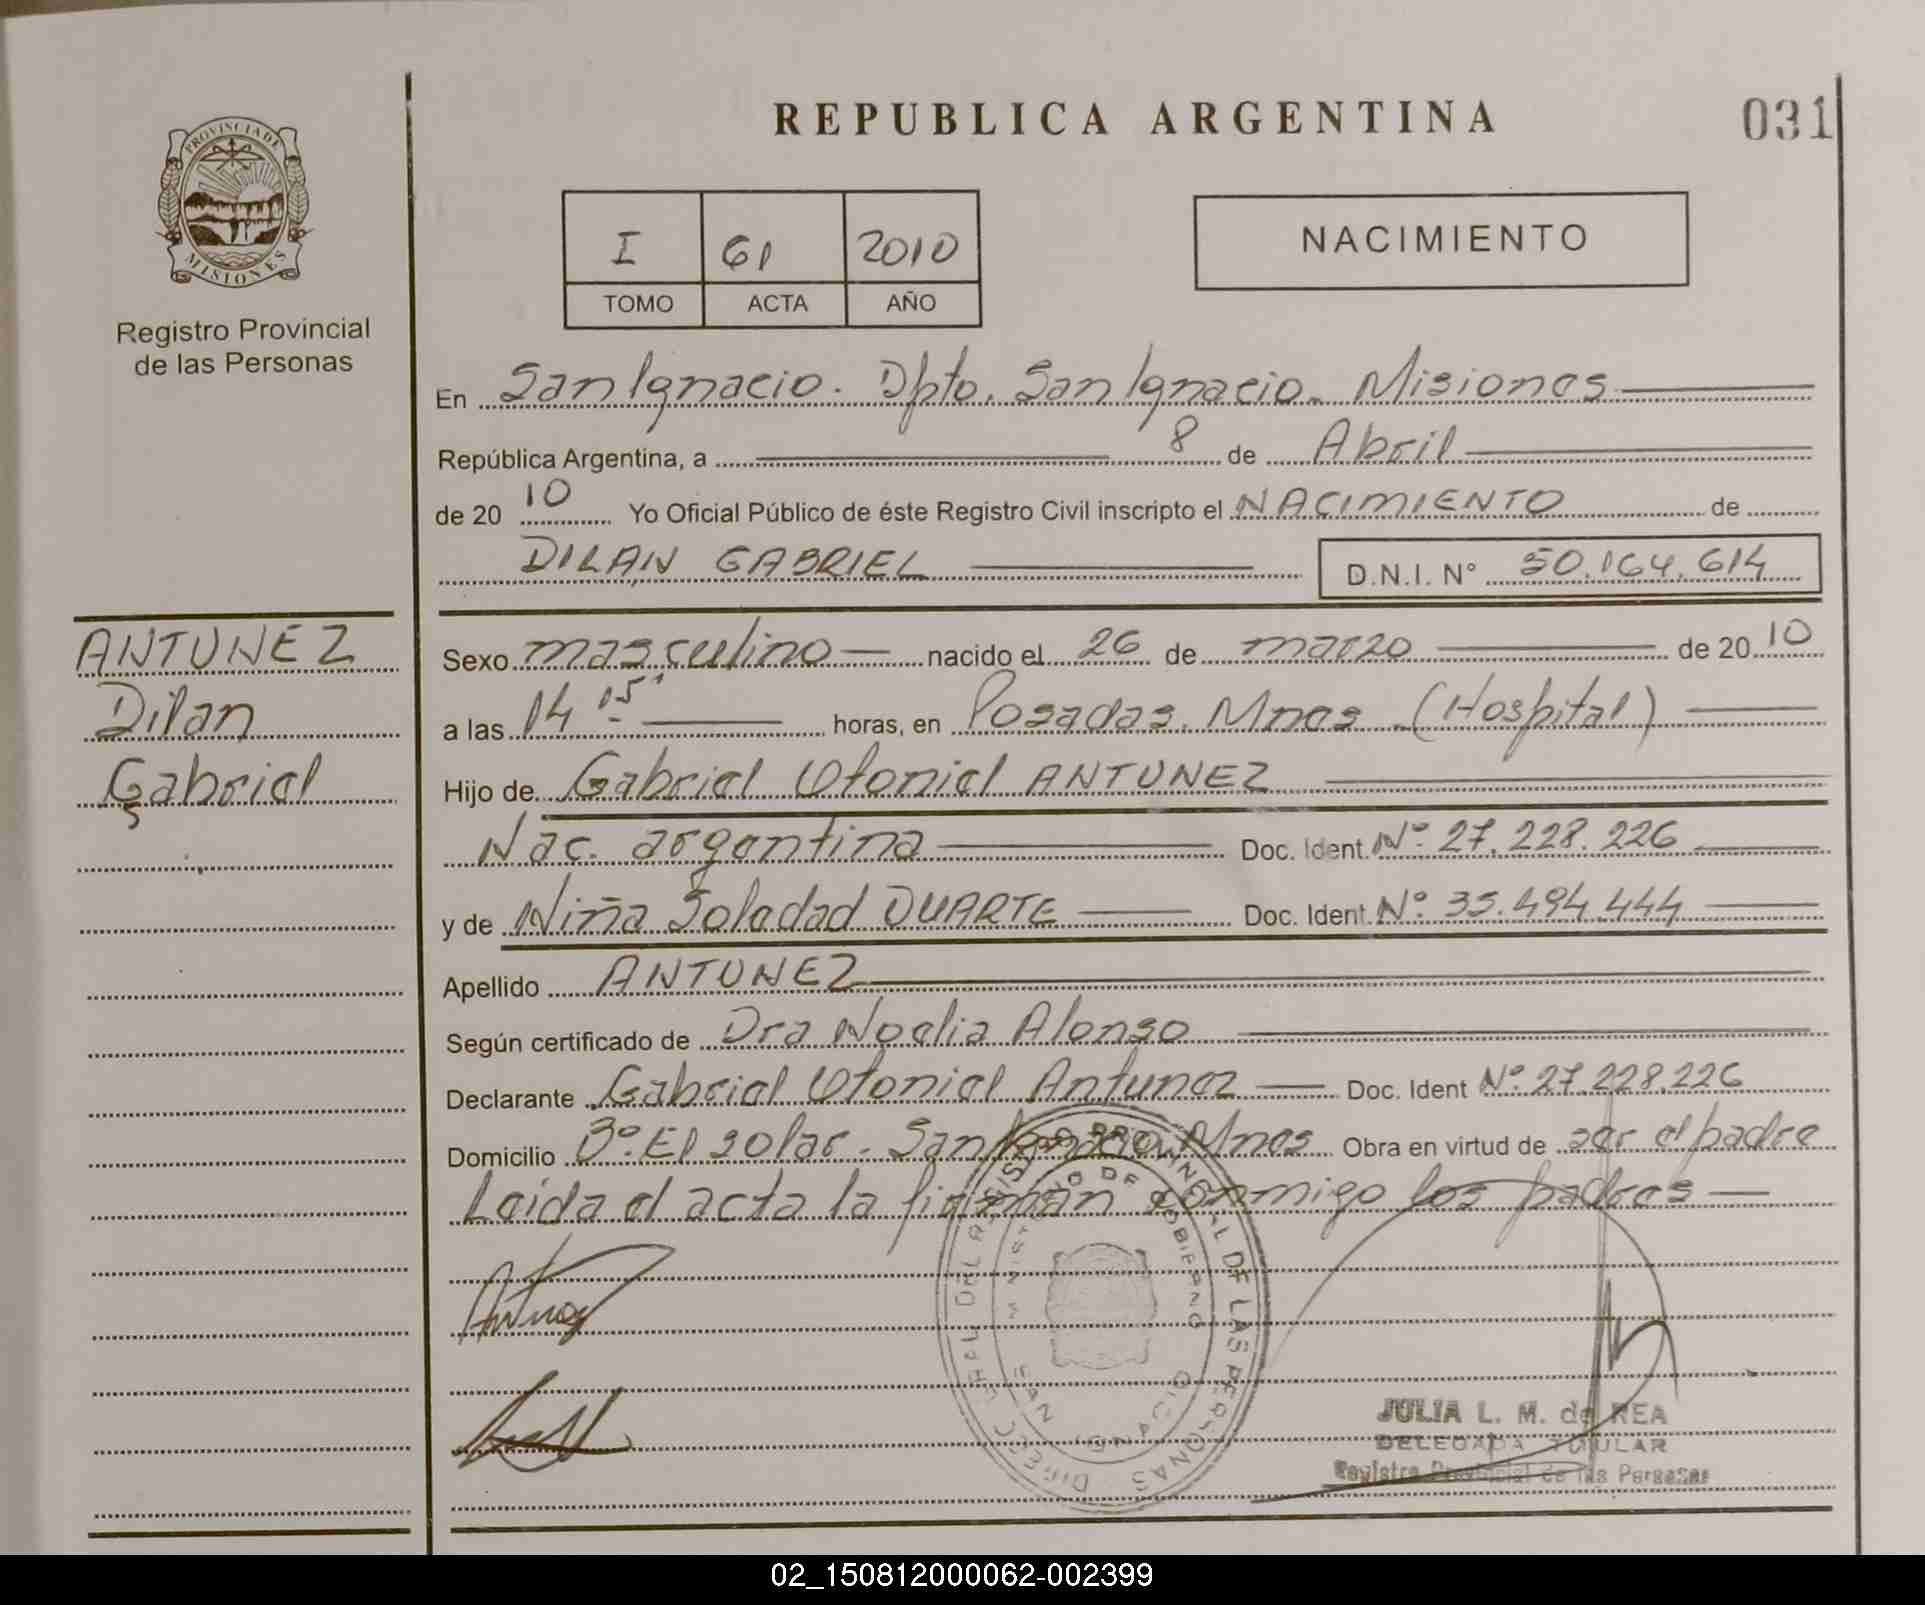 REPUBLICA ARGENTINA
031
PROVINCIA DE
MISIONES
Registro Provincial
de las Personas
I 61 2010
TOMO ACTA AÑO
NACIMIENTO
En San Ignacio. Dpto. San Ignacio. Misiones
República Argentina, a 8 de Abril
de 20 10 Yo Oficial Público de éste Registro Civil inscripto el NACIMIENTO de
DILAN GABRIEL D.N.I. N° 50.164.614
ANTUNEZ
Dilan
Gabriel
Sexo masculino nacido el 26 de marzo de 20 10
a las 14 15' horas, en Posadas. Mnes (Hospital)
Hijo de Gabriel Otoniel ANTUNEZ
Nac. argentina Doc. Ident. Nº 27.228.226
y de Niña Soledad DUARTE Doc. Ident. Nº 35.494.444
Apellido ANTUNEZ
Según certificado de Dra Noelia Alonso
Declarante Gabriel Otoniel Antunez Doc. Ident Nº 27.228.226
Domicilio Bº. El solar. San Ignacio Mnes Obra en virtud de ser el padre
Leida el acta la firman conmigo los padres
DIRECC. GRAL. DEL REGISTRO PROVINCIAL DE LAS PERSONAS
MINISTERIO DE GOBIERNO
SAN IGNACIO
Antunez
JULIA L. M. de REA
DELEGADA TITULAR
Registro Provincial de las Personas
02_150812000062-002399